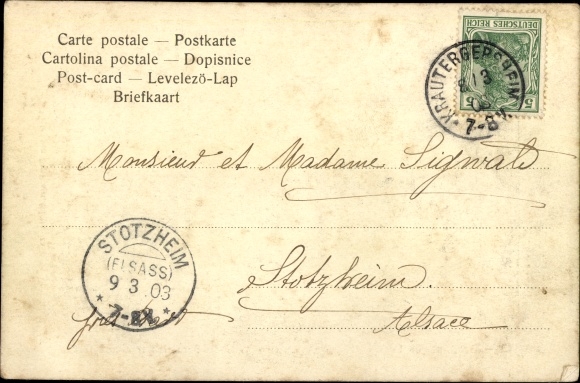 Carte postale — Postkarte
Cartolina postale — Dopisnice
Post-card — Levelezö-Lap
Briefkaart
DEUTSCHES REICH
5 5
KRAUTERGERSHEIM
3
03
7-8V.
Monsieur et Madame Sigwalt
STOTZHEIM
(ELSASS)
9 3 03
7-8V.
Stotzheim.
Alsace